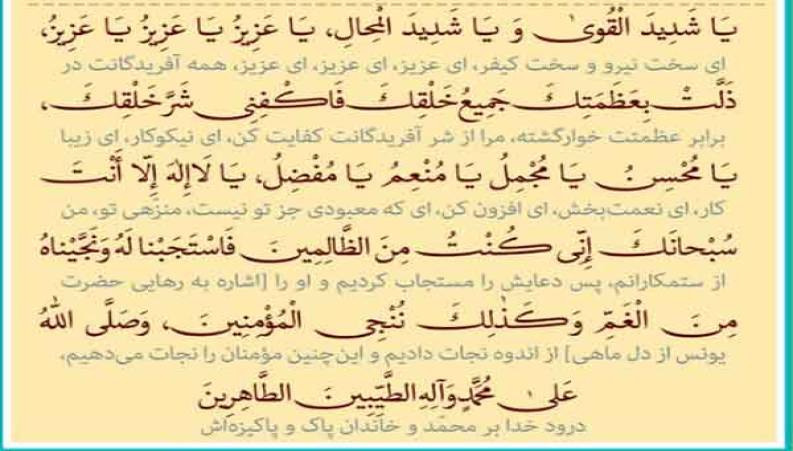 يَا شَدِيدَ الْقُوىٰ وَ يَا شَدِيدَ الْمِحالِ، يَا عَزِيزُ يَا عَزِيزُ يَا عَزِيزُ،
ای سخت نیرو و سخت کیفر، ای عزیز، ای عزیز، ای عزیز، همه آفریدگانت در
ذَلَّتْ بِعَظَمَتِكَ جَمِيعُ خَلْقِكَ فَاكْفِنِى شَرَّ خَلْقِكَ،
برابر عظمتت خوارگشته، مرا از شر آفریدگانت کفایت کن، ای نیکوکار، ای زیبا
يَا مُحْسِنُ يَا مُجْمِلُ يَا مُنْعِمُ يَا مُفْضِلُ، يَا لَاإِلٰهَ إِلّا أَنْتَ
کار، ای نعمت‌بخش، ای افزون کن، ای که معبودی جز تو نیست، منزّهی تو، من
سُبْحانَكَ إِنِّى كُنْتُ مِنَ الظَّالِمِينَ فَاسْتَجَبْنا لَهُ وَنَجَّيْناهُ
از ستمکارانم، پس دعایش را مستجاب کردیم و او را [اشاره به رهایی حضرت
مِنَ الْغَمِّ وَكَذٰلِكَ نُنْجِى الْمُؤْمِنِينَ، وَصَلَّى اللّٰهُ
یونس از دل ماهی] از اندوه نجات دادیم و این‌چنین مؤمنان را نجات می‌دهیم،
عَلىٰ مُحَمَّدٍ وَآلِهِ الطَّيِّبِينَ الطَّاهِرِينَ
درود خدا بر محمّد و خاندان پاک و پاکیزه‌اش